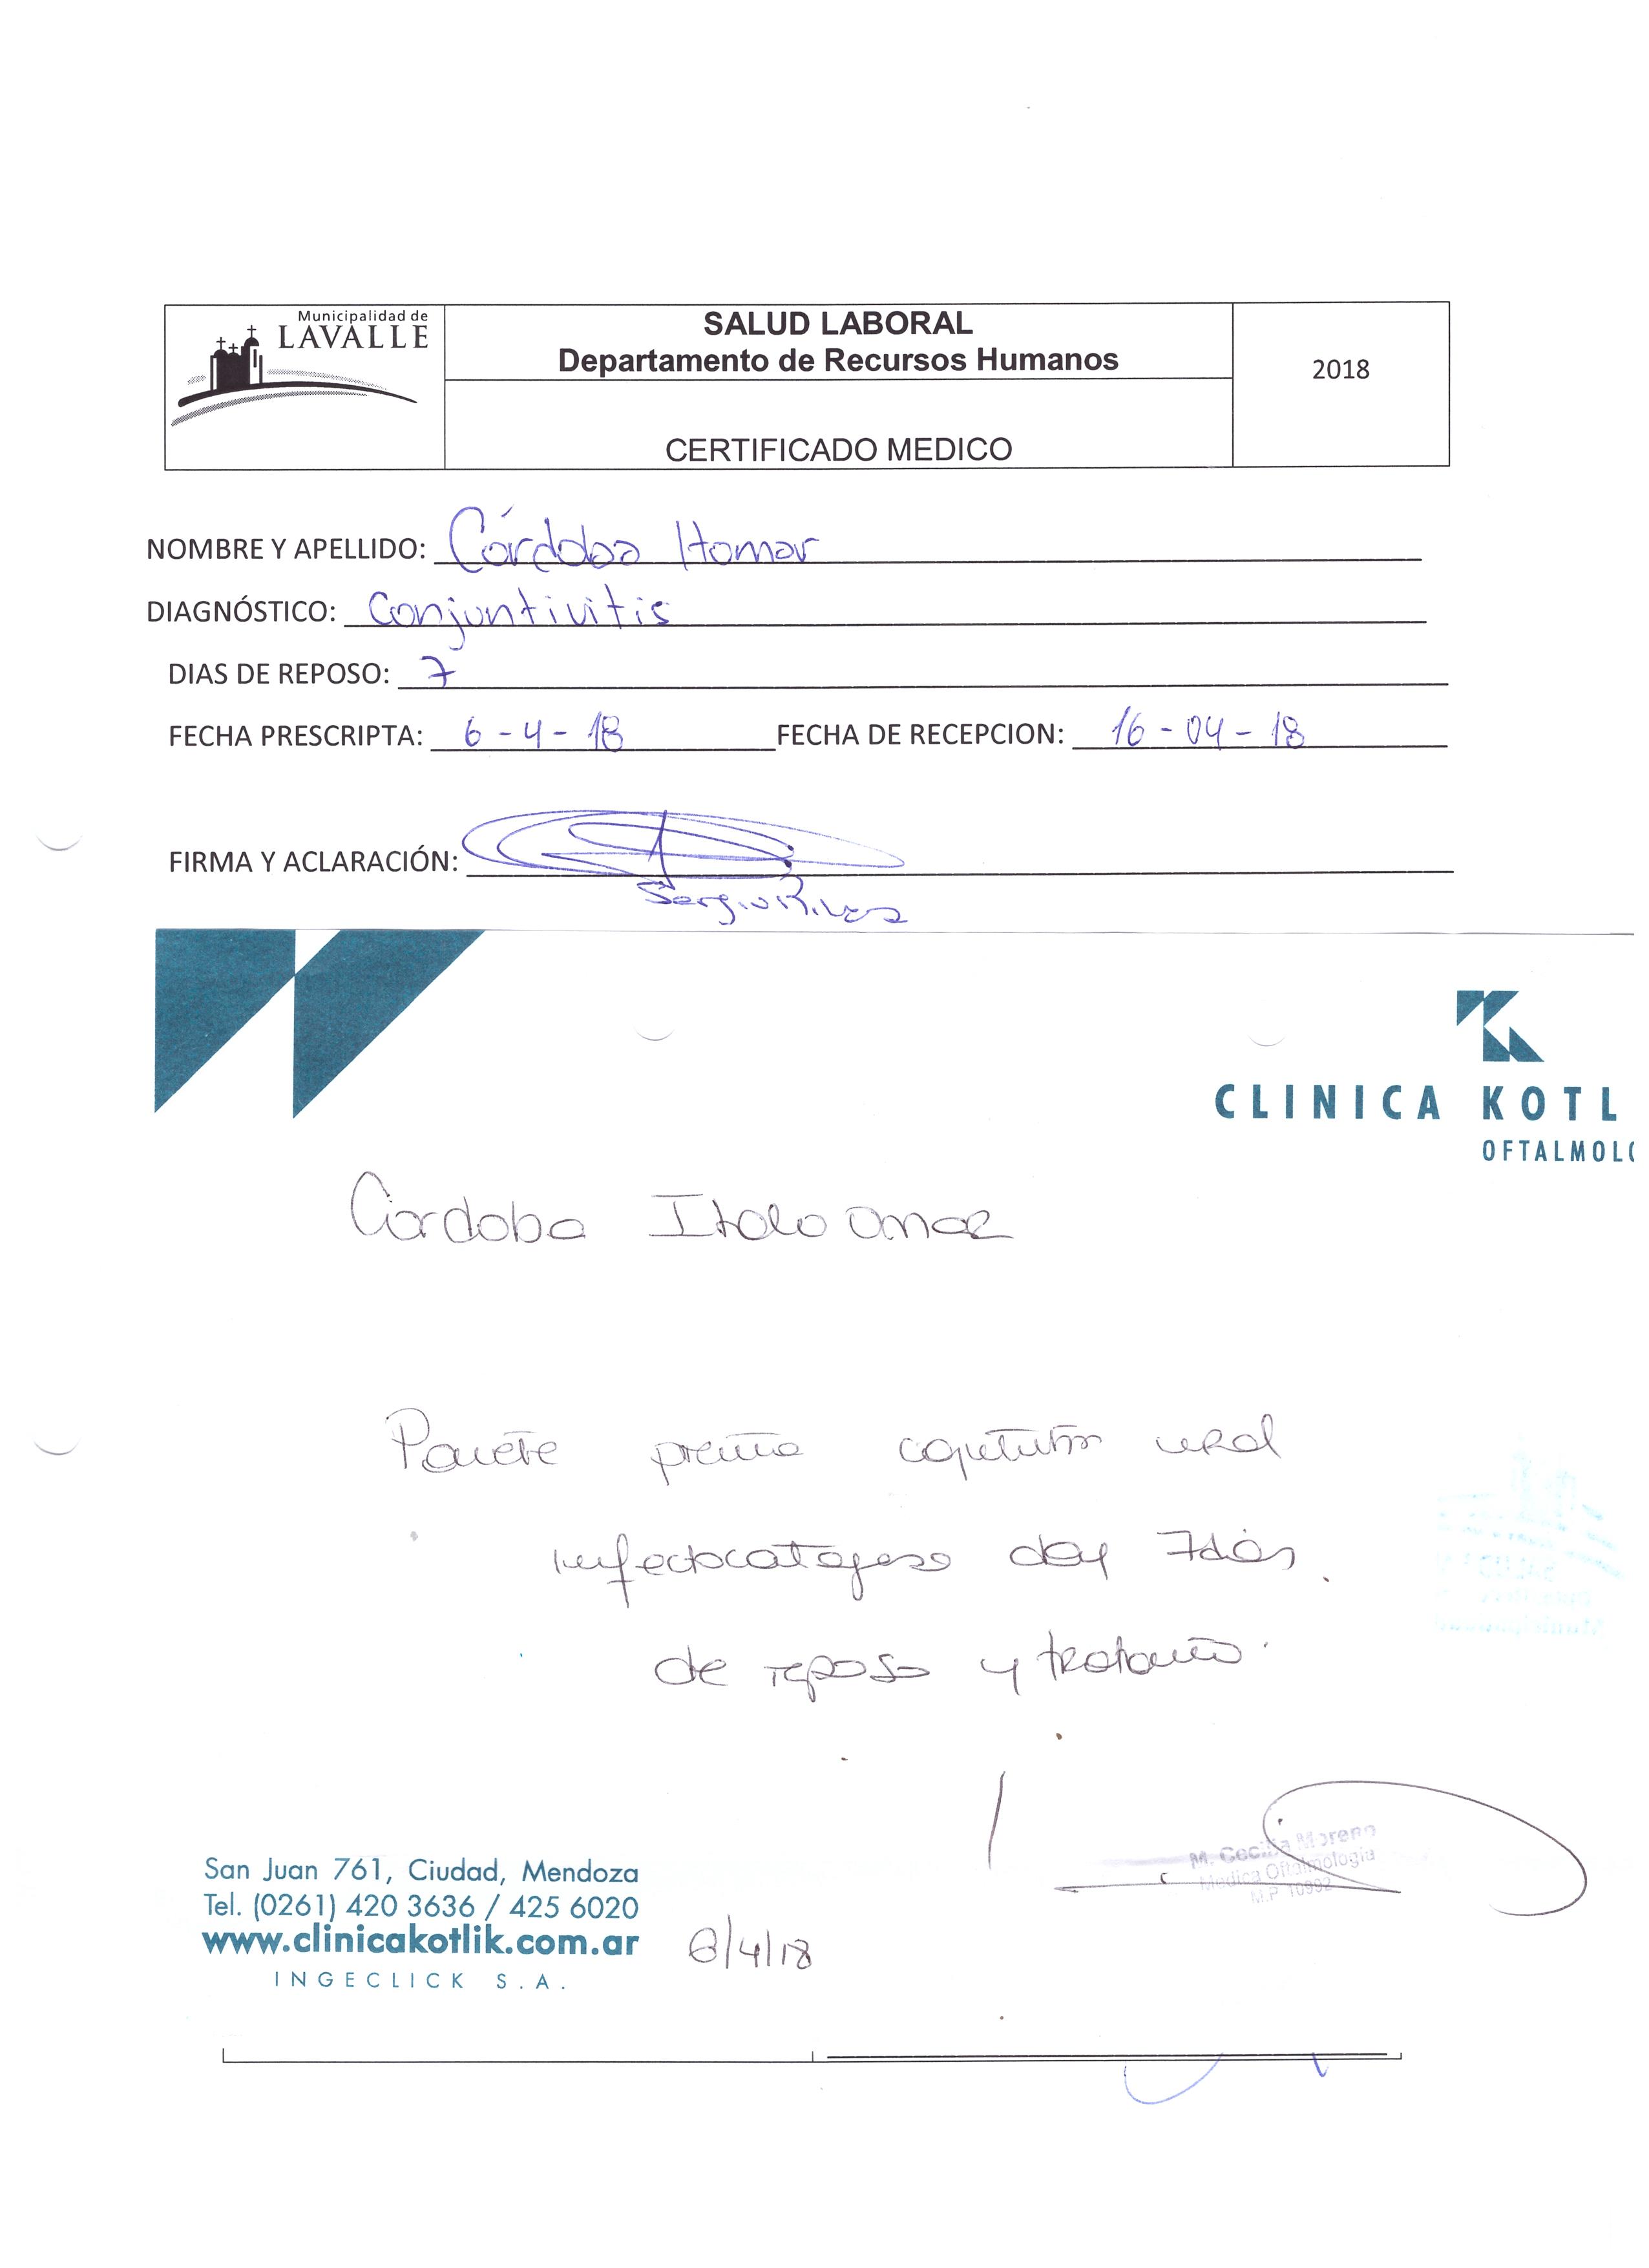 Municipalidad de
LAVALLE
SALUD LABORAL
Departamento de Recursos Humanos
2018
CERTIFICADO MEDICO
NOMBRE Y APELLIDO: Córdoba Homar
DIAGNÓSTICO: Conjuntivitis
DIAS DE REPOSO: 7
FECHA PRESCRIPTA: 6-4-18 FECHA DE RECEPCION: 16-04-18
FIRMA Y ACLARACIÓN:
Sergio
CLINICA KOTL
OFTALMOLO
Córdoba Italo Omar
doy 7 días
de reposo y
M. Cecilia Moreno
Medica Oftalmologia
M.P. 10992
San Juan 761, Ciudad, Mendoza
Tel. (0261) 420 3636 / 425 6020
www.clinicakotlik.com.ar
6/4/18
INGECLICK S.A.